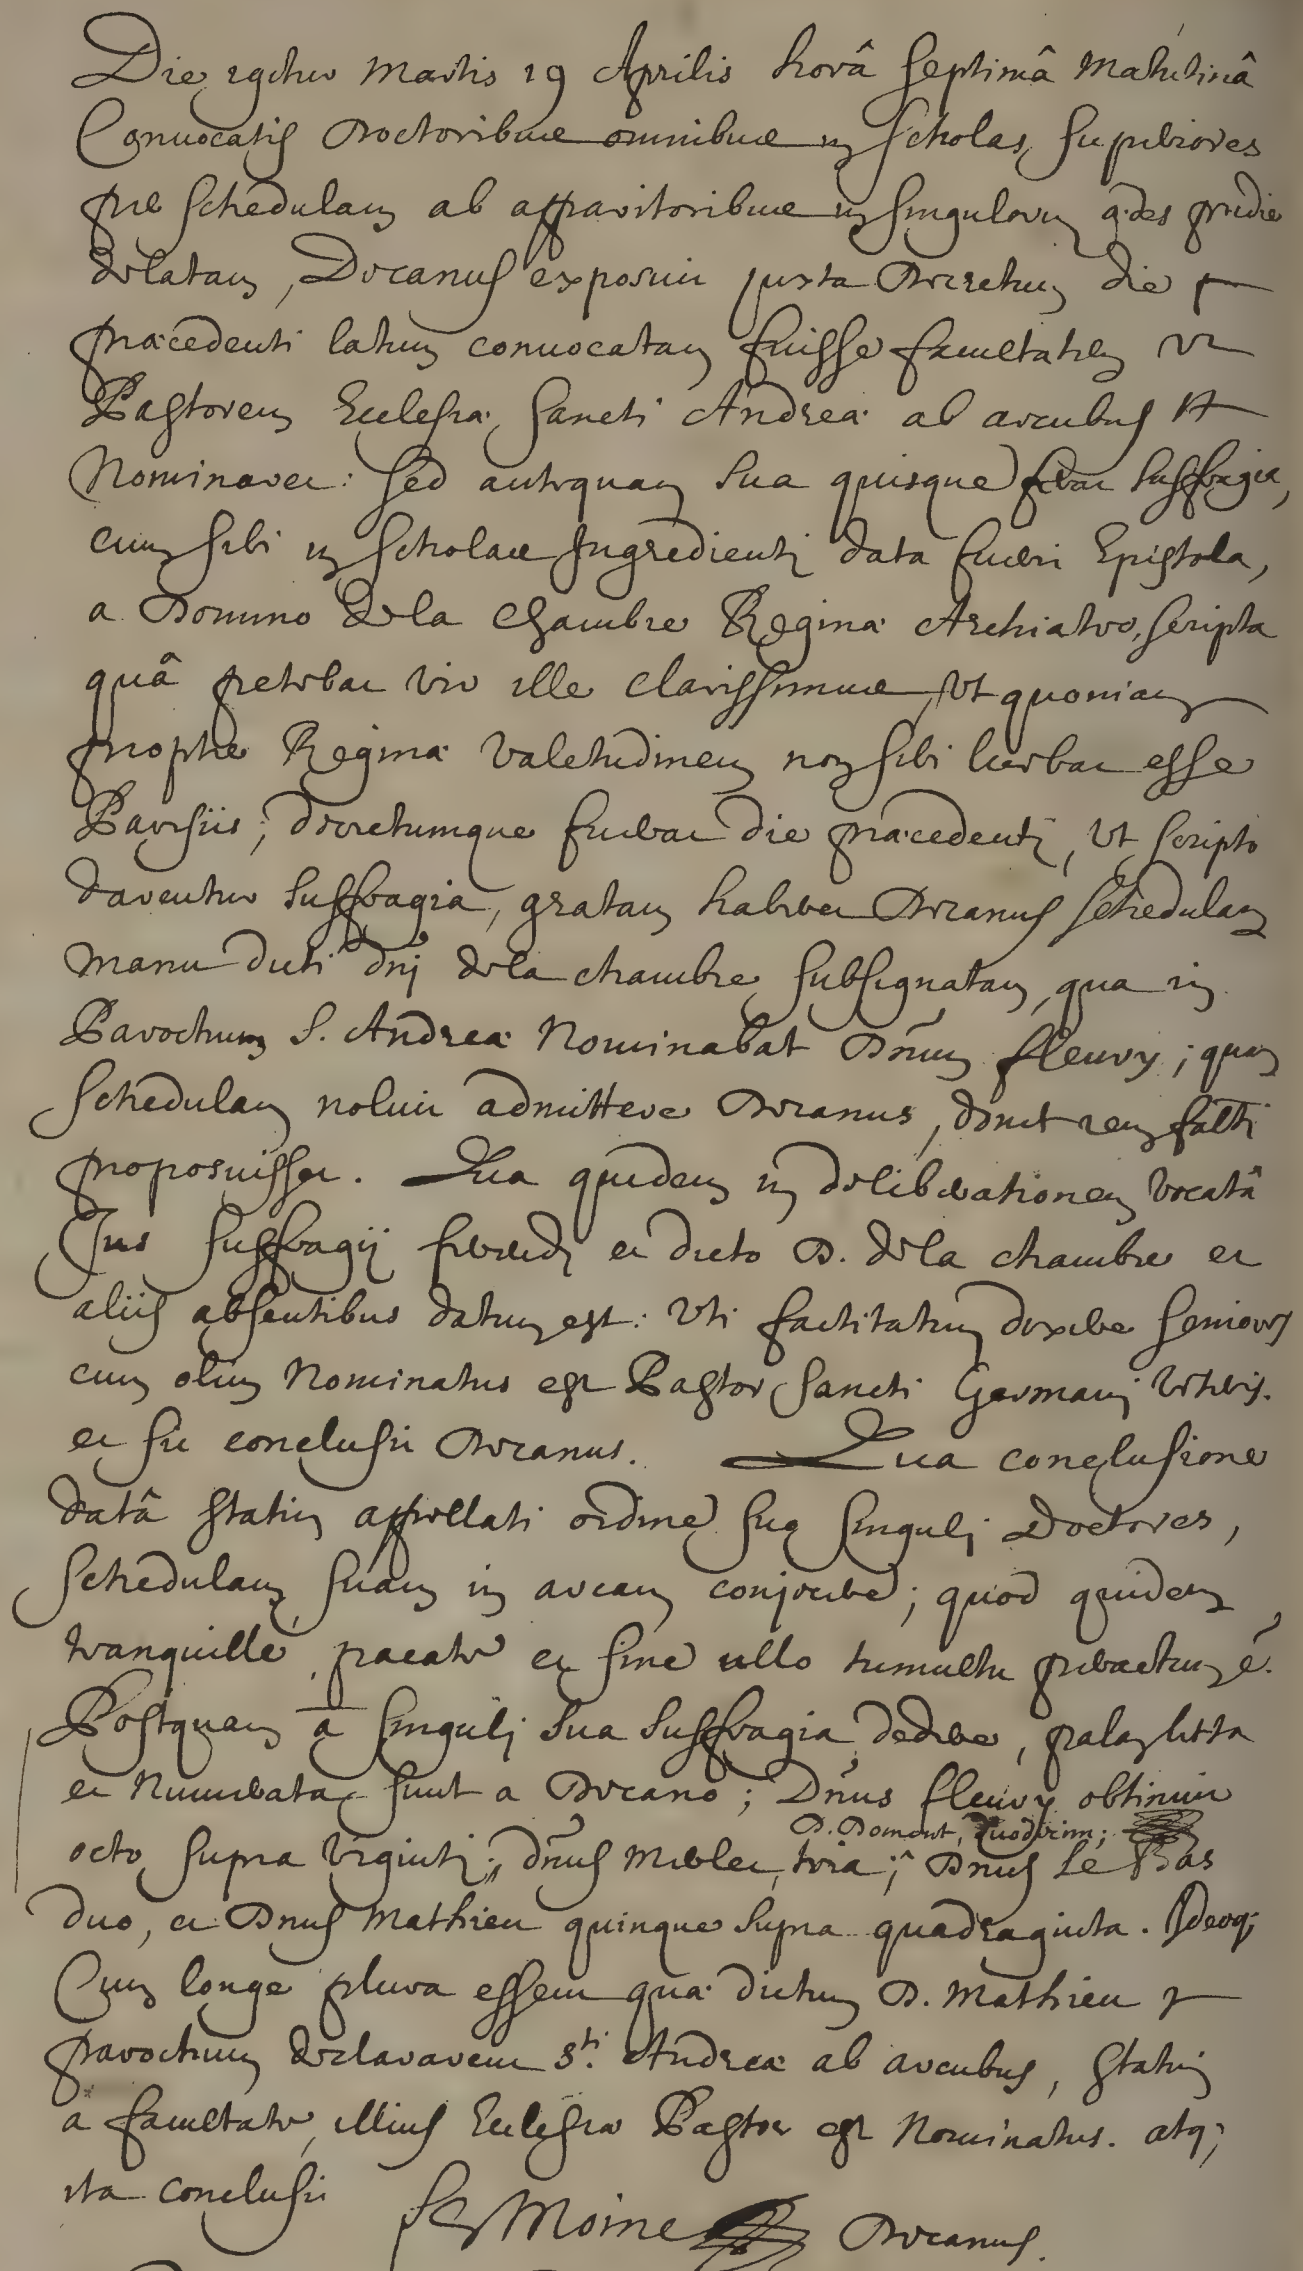 Die igitur Martis 19 Aprilis horâ septimâ Matutinâ
Convocatis Doctoribus omnibus in scholas superiores
per schedulam ab apparitoribus in singulorum ædes pridie
delatam, Decanus exposuit juxta Decretum die
præcedenti latum convocatam fuisse facultatem ut
Pastorem Ecclesiæ Sancti Andreæ ab arcubus
Nominaret: sed antequam sua quisque ferat suffragia,
cum sibi in scholas Ingredienti data fuerit Epistola,
a Domino de la Chambre Reginæ Archiatro, scripta
quâ petebat vir ille clarissimus, ut quoniam
propter Reginæ valetudinem non sibi licebat esse
Parisiis; decretumque fuerat die præcedenti, ut scripto
darentur suffragia, gratam haberet Decanus schedulam
manu dicti dnj de la chambre subsignatam, qua in
Parochum S. Andreæ Nominabat Dnum fleury; quam
schedulam noluit admittere Decanus, donec rem facti
proposuisset. Qua quidem in deliberationem vocatâ
Jus suffragij ferendi et dicto D. de la chambre et
aliis absentibus datum est: Uti factitatum dixere seniores
cum olim Nominatus est Pastor Sancti Germani veteris.
et sic conclusit Decanus. Qua conclusione
datâ statim appellati ordine suo singuli Doctores,
schedulam suam in arcam conjecere; quod quidem
tranquille, pacate et sine ullo tumultu peractum ē.
Postquam a singuli sua suffragia dedere, palam lecta
et Numerata sunt a Decano; Dnus fleury obtinuit
D. Domont, Quodecim;
octo supra viginti; dnus Merlet, tria; ^ Dnus Le Bas
duo, et Dnus Mathieu quinque supra quadraginta. Ideoq;
Cum longe plura essent quæ dictum D. Mathieu
parochum declararent Sti. Andreæ ab arcubus, statim
a facultate, illius Ecclesiæ Pastor est Nominatus. atq;
ita conclusit
Le Moine Decanus.